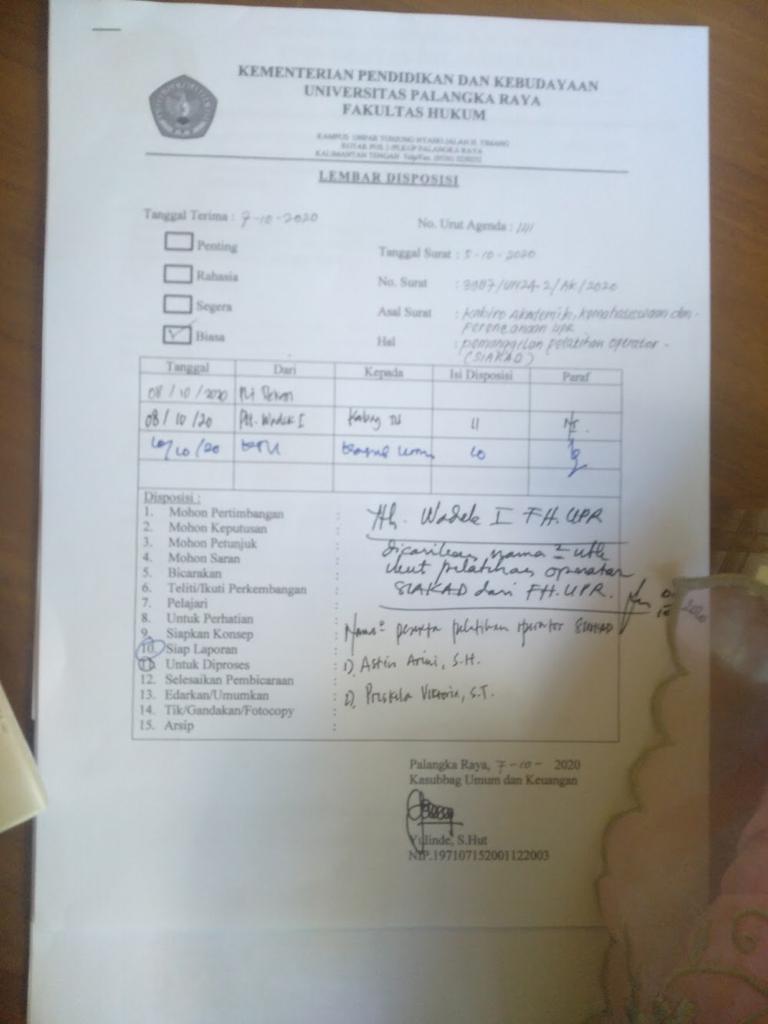 KEMENTERIAN PENDIDIKAN DAN KEBUDAYAAN
UNIVERSITAS PALANGKA RAYA
FAKULTAS HUKUM
KAMPUS UNPAR TUNJUNG NYAHO JALAN H. TIMANG
KALIMANTAN TENGAH
LEMBAR DISPOSISI
Tanggal Terima : 7-10-2020
No. Urut Agenda :
Penting
Tanggal Surat : 5-10-2020
Rahasia
No. Surat : 3987/UN24.2/AK/2020
Segera
Asal Surat : Kabiro Akademik, kemahasiswaan dan
Perencanaan UPR
Biasa
Hal : pemanggilan pelatihan operator
(SIAKAD)
Tanggal Dari Kepada Isi Disposisi Paraf
08/10/2020
08/10/20 Wadek I Kabag TU 11
10/10/20 10
Disposisi :
1. Mohon Pertimbangan :
2. Mohon Keputusan :
3. Mohon Petunjuk :
4. Mohon Saran :
5. Bicarakan :
6. Teliti/Ikuti Perkembangan :
7. Pelajari :
8. Untuk Perhatian :
9. Siapkan Konsep :
10. Siap Laporan :
11. Untuk Diproses :
12. Selesaikan Pembicaraan :
13. Edarkan/Umumkan :
14. Tik/Gandakan/Fotocopy :
15. Arsip :
Yth. Wadek I FH.UPR
nama2 utk
ikut pelatihan operator
SIAKAD dari FH.UPR.
Nama2 peserta pelatihan operator SIAKAD
1) Astin Arini, S.H.
2) Priskila Victoria, S.T.
Palangka Raya, 7-10- 2020
Kasubbag Umum dan Keuangan
Yulinde, S.Hut
NIP.197107152001122003